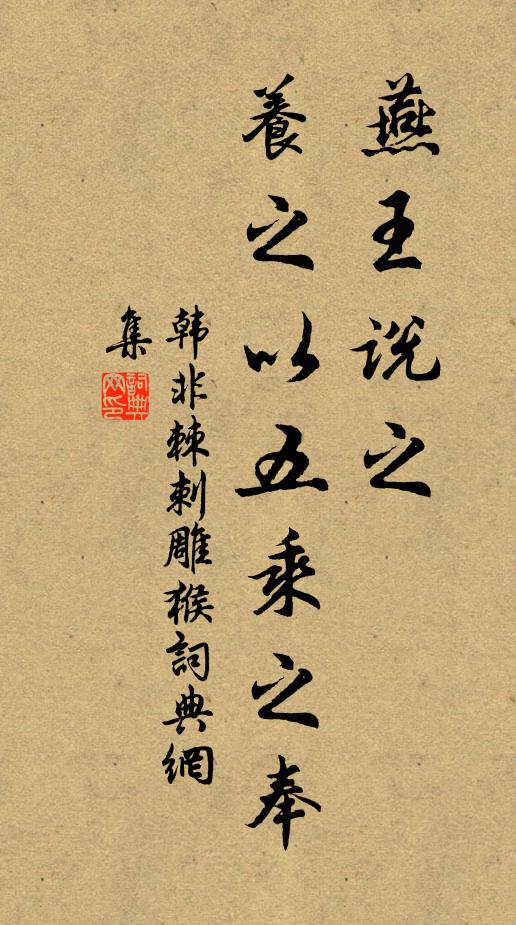 燕王説之
養之以五乘之奉
韩非棘刺雕猴詞典網
集
詞典網印